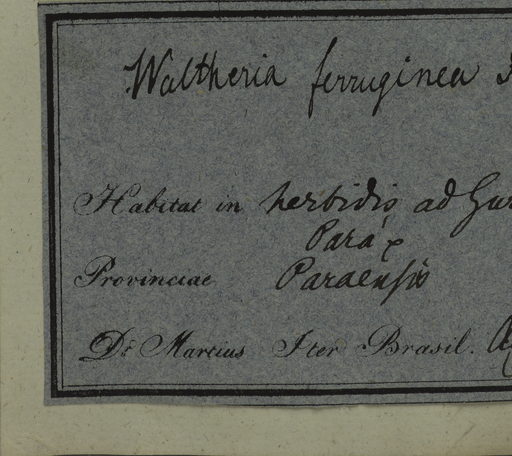 Waltheria ferruginea
Habitat in herbidis ad
Pará
Provinciae Paraensis
Dr. Martius Iter Brasil.